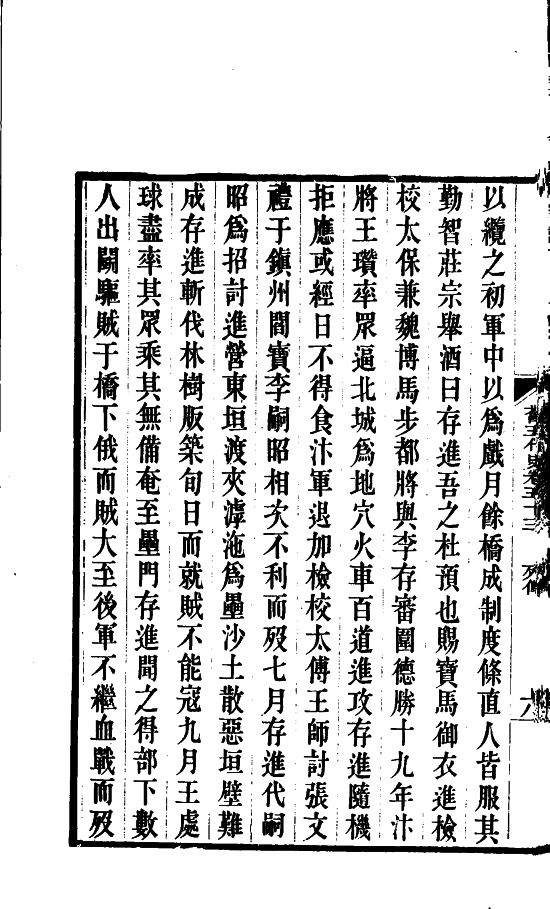 以纜之初軍中以爲戲月餘橋成制度條直人皆服其
勤智莊宗舉酒曰存進吾之杜預也賜寶馬御衣進檢
校太保兼魏博馬步都將與李存審圍德勝十九年汴
將王瓚率眾逼北城爲地穴火車百道進攻存進隨機
拒應或經日不得食汴軍退加檢校太傅王師討張文
禮于鎮州閻寶李嗣昭相次不利而歿七月存進代嗣
昭爲招討進營東垣渡夾滹沱爲壘沙土散惡垣壁難
成存進斬伐林樹版築旬日而就賊不能寇九月王處
球盡率其眾乘其無備奄至壘門存進聞之得部下數
人出鬭驅賊于橋下俄而賊大至後軍不繼血戰而歿